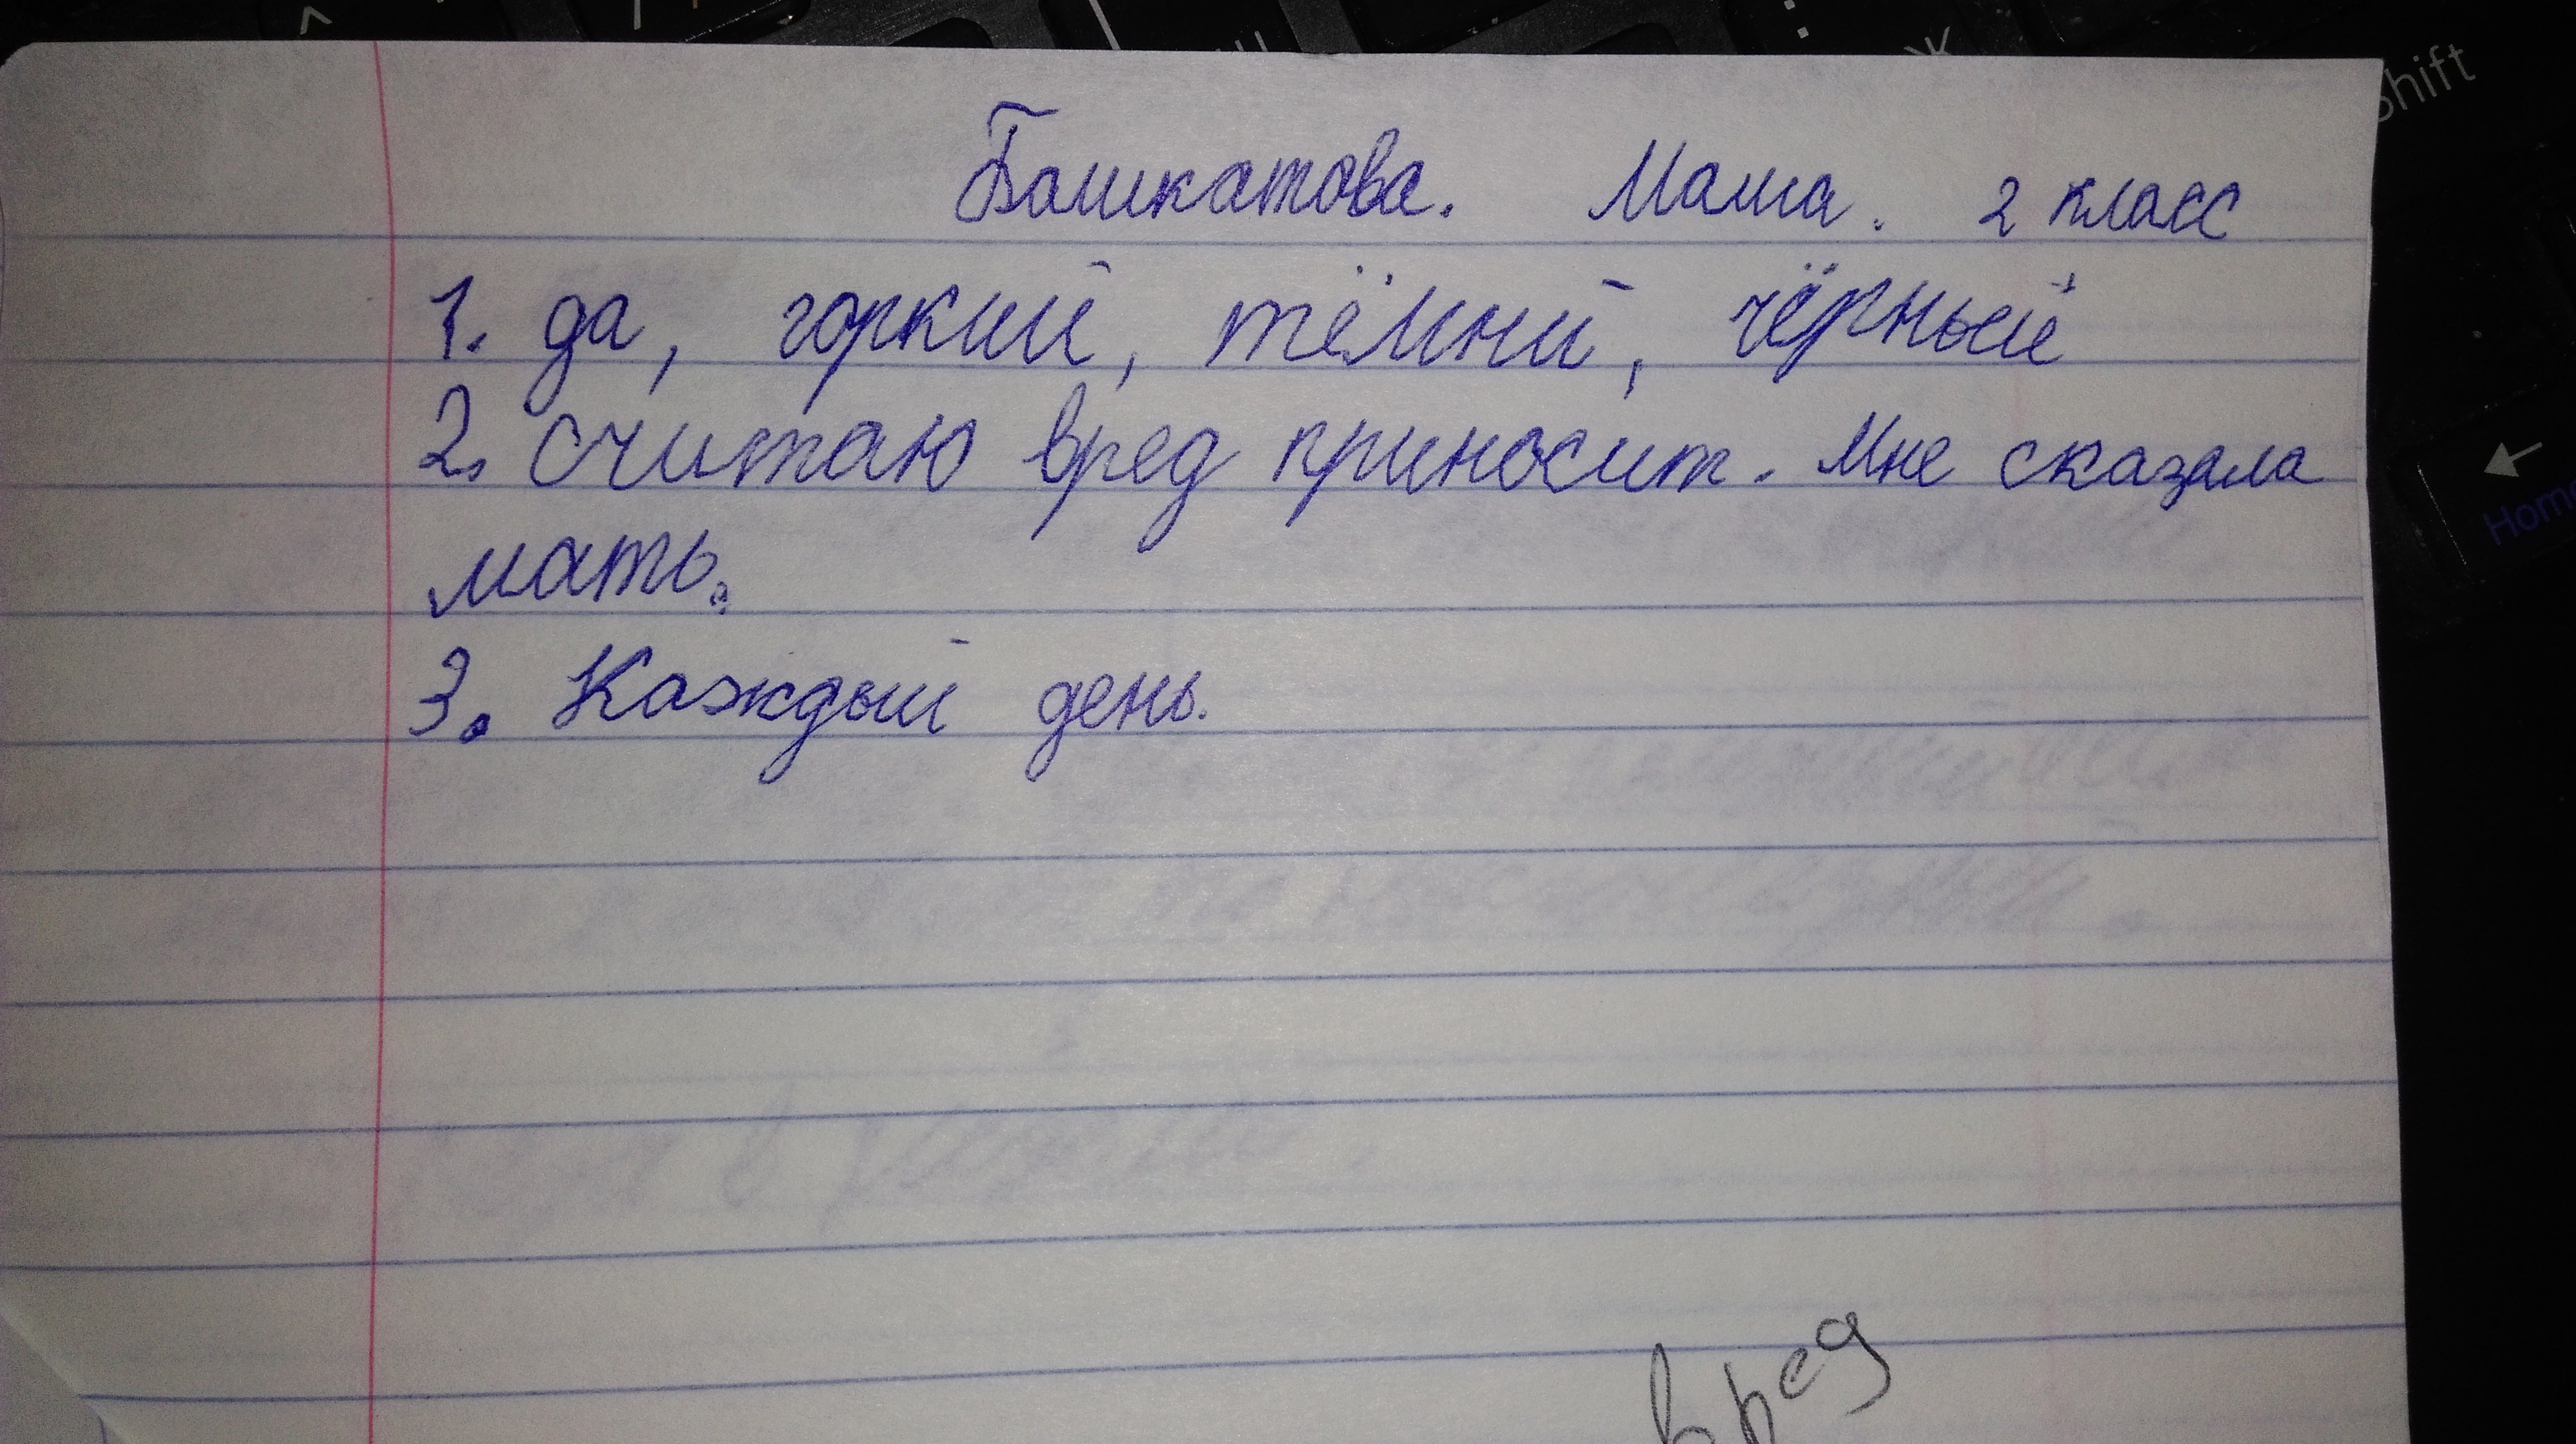 Башкатова. Маша. 2 класс
1. да, горкий, тёмний, чёрный
2. считаю вред приносит. Мне сказала
мать.
3. Каждый день.
вред
Shift
Ж
Home